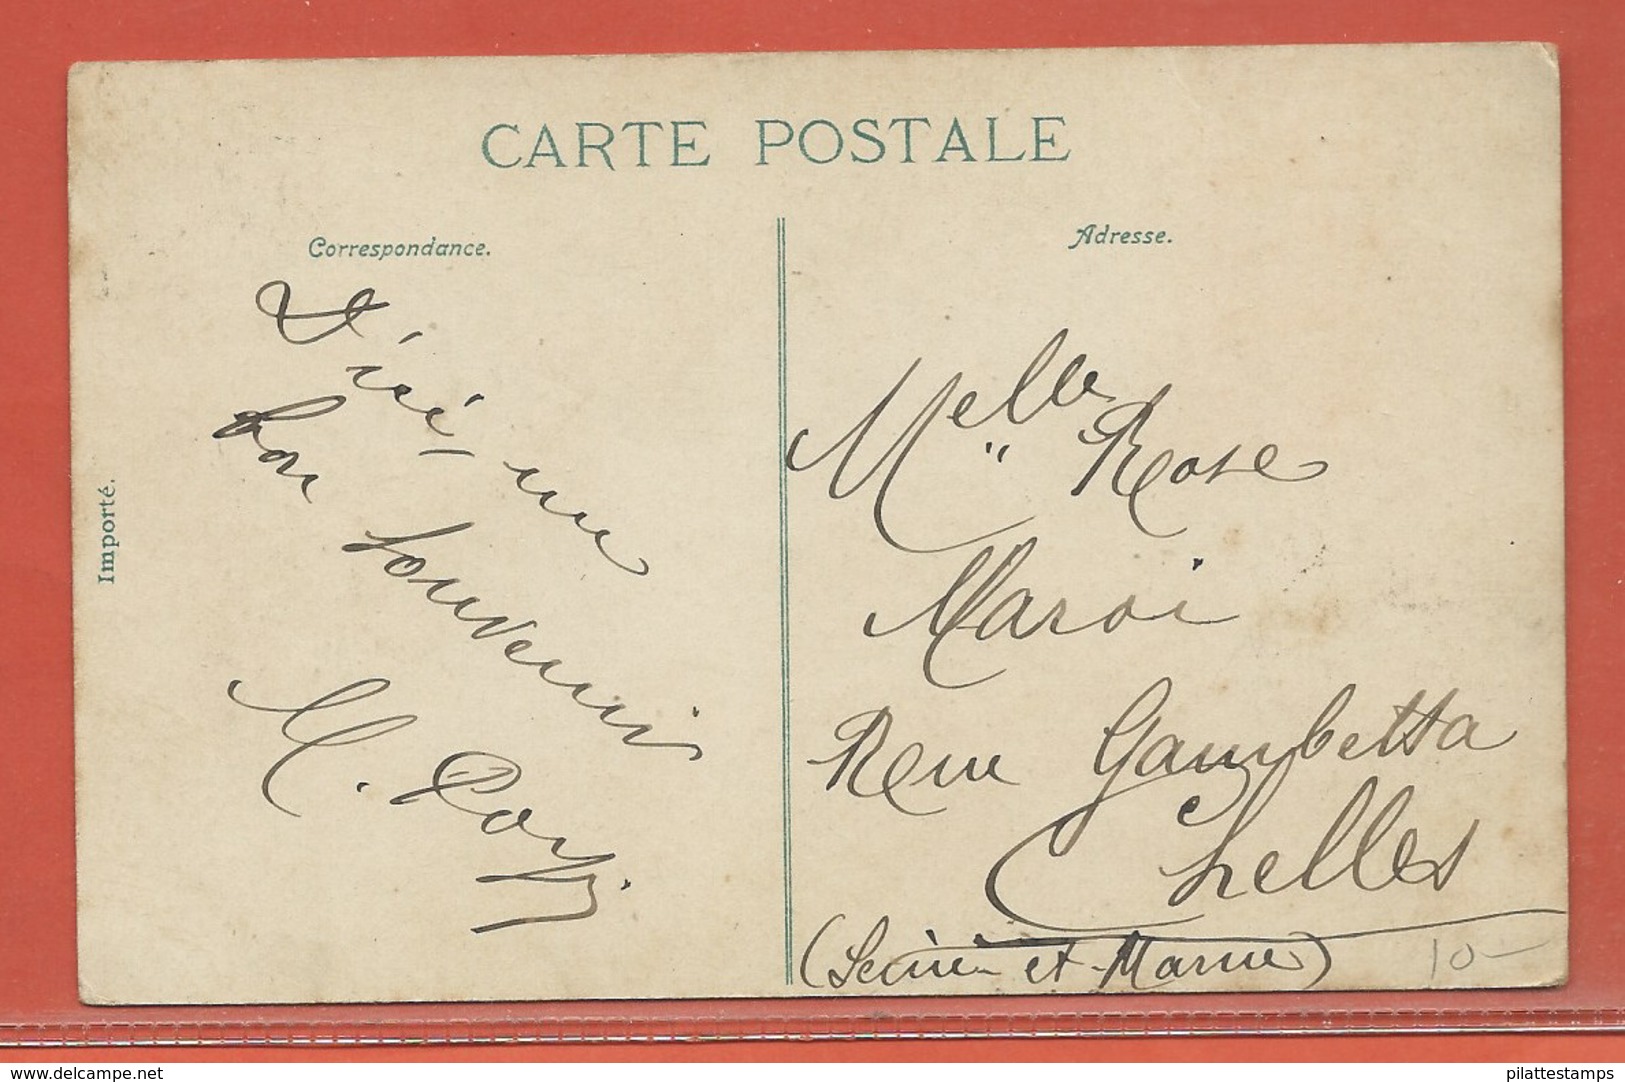 CARTE POSTALE
Correspondance.
Adresse.
Importé.
un
bon souvenir
M.
Melle Rose
Maroi
Reue Gambetta
Chelles
(Seine et Marne)
10-
www.delcampe.net
pilattestamps